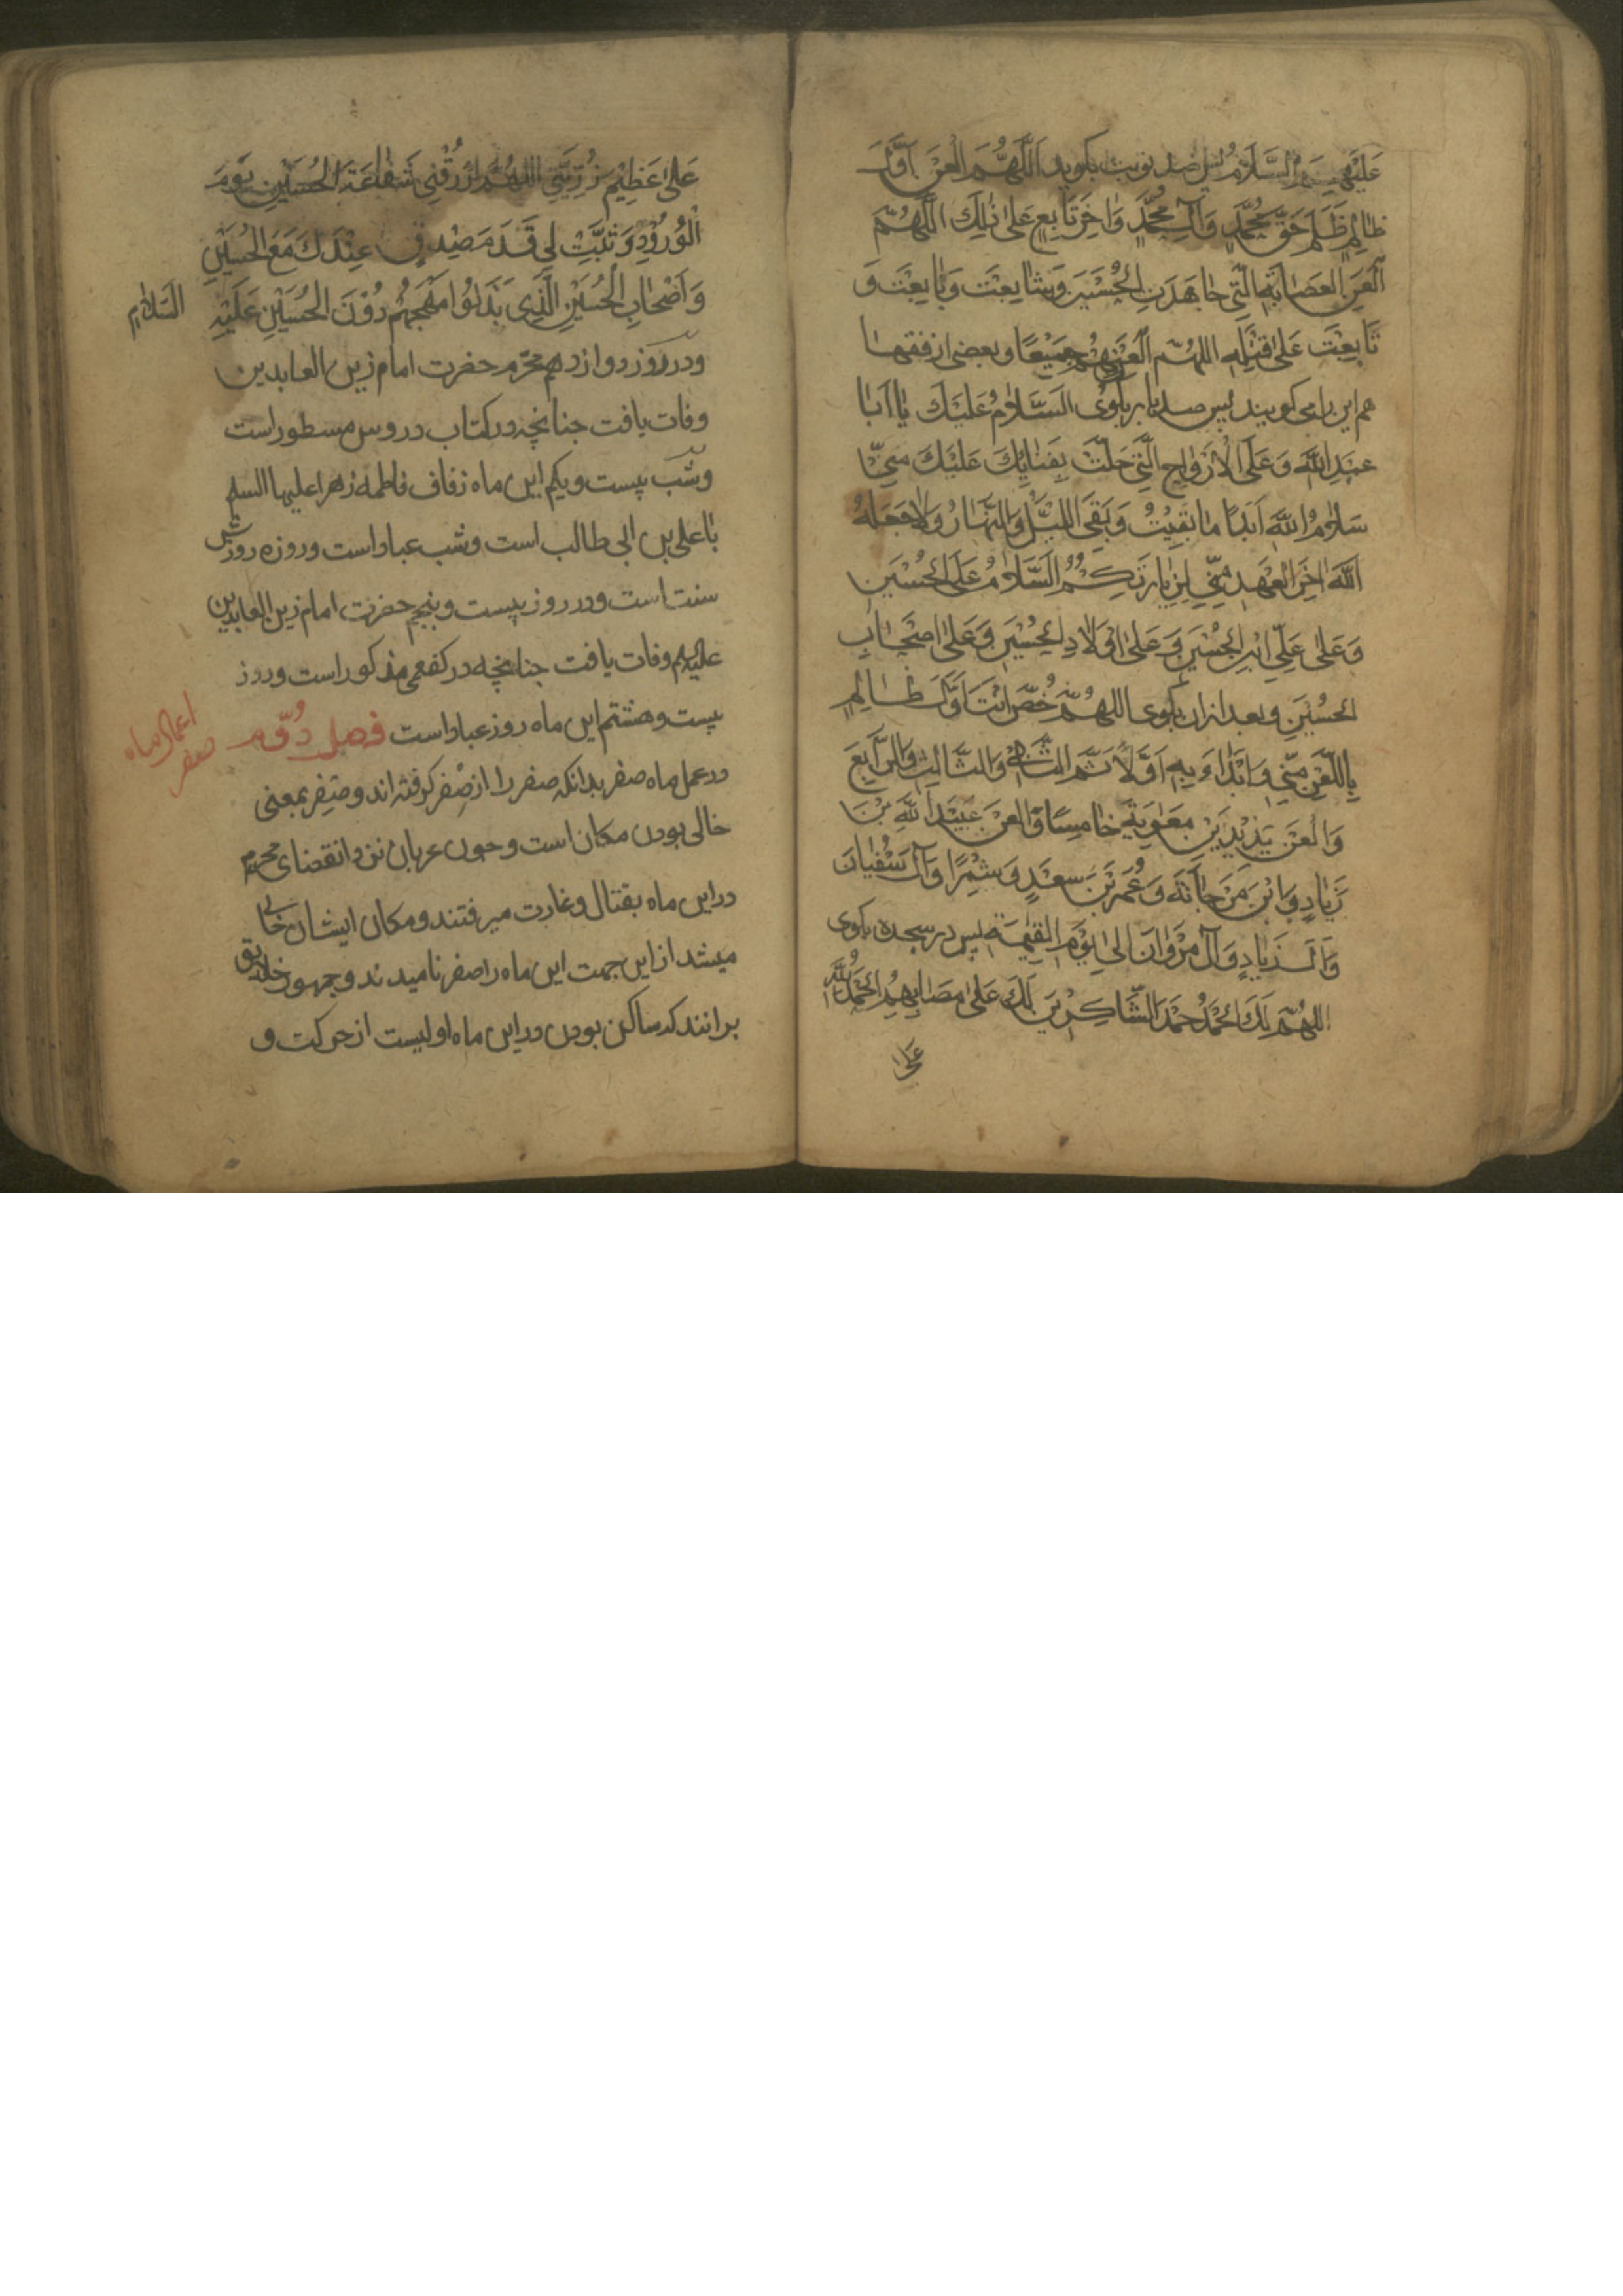 عَلَيْهِمُ السَّلَامُ پس صد نوبت بکوید اَللّٰهُمَّ الْعَنْ اَوَّلَ
ظَالِمٍ ظَلَمَ حَقَّ مُحَمَّدٍ وَآلِ مُحَمَّدٍ وَاٰخِرَ تَابِعٍ عَلىٰ ذٰلِكَ اَللّٰهُمَّ
الْعَنِ الْعَصَابَةَ الَّتِي جَاهَدَتِ الْحُسَيْنَ وَشَايَعَتْ وَبَايَعَتْ وَ
تَابَعَتْ عَلىٰ قَتْلِهِ اللهُمَّ الْعَنْهُمْ جَمِيْعًا وبعضی از فقها
هم این را می کویند پس صد بار بکوی السَّلَامُ عَلَيْكَ يَا اَبَا
عَبْدِ اللّٰهِ وَعَلَى الْاَرْوَاحِ الَّتِي حَلَّتْ بِفَنَائِكَ عَلَيْكَ مِنِّي
سَلَامُ اللّٰهِ اَبَدًا مَا بَقِيْتُ وَبَقِيَ اللَّيْلُ وَالنَّهَارُ وَلَا جَعَلَهُ
اللّٰهُ اٰخِرَ الْعَهْدِ مِنِّي لِزِيَارَتِكُمْ اَلسَّلَامُ عَلَى الْحُسَيْنِ
وَعَلىٰ عَلِيِّ ابْنِ الْحُسَيْنِ وَعَلىٰ اَوْلَادِ الْحُسَيْنِ وَعَلىٰ اَصْحَابِ
الْحُسَيْنِ وبعد ازان بکوی اللهُمَّ خُصَّ اَنْتَ اَوَّلَ ظَالِمٍ
بِاللَّعْنِ مِنِّي وَابْدَاءْ بِهِ اَوَّلًا ثُمَّ الثَّانِي وَالثَّالِثَ وَالرَّابِعَ
وَالْعَنْ يَزِيْدَ بْنَ مَعٰوِيَةَ خَامِسًا وَالْعَنْ عُبَيْدَ اللّٰهِ بْنَ
زِيَادٍ وَابْنَ مَرْجَانَةَ وَعُمَرَ بْنَ سَعْدٍ وَشِمْرًا وَآلَ سُفْيَانَ
وَآلَ زِيَادٍ وَآلَ مَرْوَانَ اِلىٰ يَوْمِ الْقِيٰمَةِ پس در سجده بکوی
اللهُمَّ لَكَ الْحَمْدُ حَمْدَ الشَّاكِرِيْنَ لَكَ عَلىٰ مَصَابِهِمْ اَلْحَمْدُ لِلّٰهِ
عَلىٰ
عَلىٰ عَظِيْمِ رَزِيَّتِي اللهُمَّ ارْزُقْنِي شَفَاعَةَ الْحُسَيْنِ يَوْمَ
الْوُرُوْدِ وَثَبِّتْ لِي قَدَمَ صِدْقٍ عِنْدَكَ مَعَ الْحُسَيْنِ
وَاَصْحَابِ الْحُسَيْنِ الَّذِي بَذَلُوْا مُهَجَهُمْ دُوْنَ الْحُسَيْنِ عَلَيْهِ السَّلَام
ودر روز دوازدهم محرم حضرت امام زین العابدین
وفات یافت جنانچه در کتاب دروس مسطور است
وشب بیست ویکم این ماه زفاف فاطمه زهرا علیها السلم
با علی بن ابی طالب است وشب عباد است وروزه روزش
سنت است ودر روز بیست وپنجم حضرت امام زین العابدین
علیه السلم وفات یافت جنانچه در کفعمی مذکور است وروز
بیست وهشتم این ماه روز عباد است فصل دُوّم
اعمال ماه صفر
در عمل ماه صفر بدانکه صفر را از صُفْر کرفته اند وصِفِر بمعنی
خالی بودن مکان است وچون عربان نزد انقضای محرم
در این ماه بقتال وغارت میرفتند ومکان ایشان خالی
میشد از این جهت این ماه را صفر نامیدند وجمهور خلایق
برانند که ساکن بودن در این ماه اولیست از حرکت و